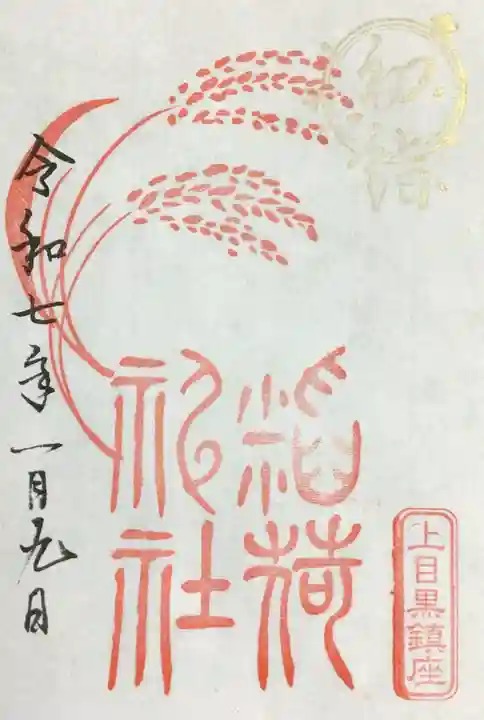 初詣
稲荷
神社
上目黒鎮座
令和七年一月九日